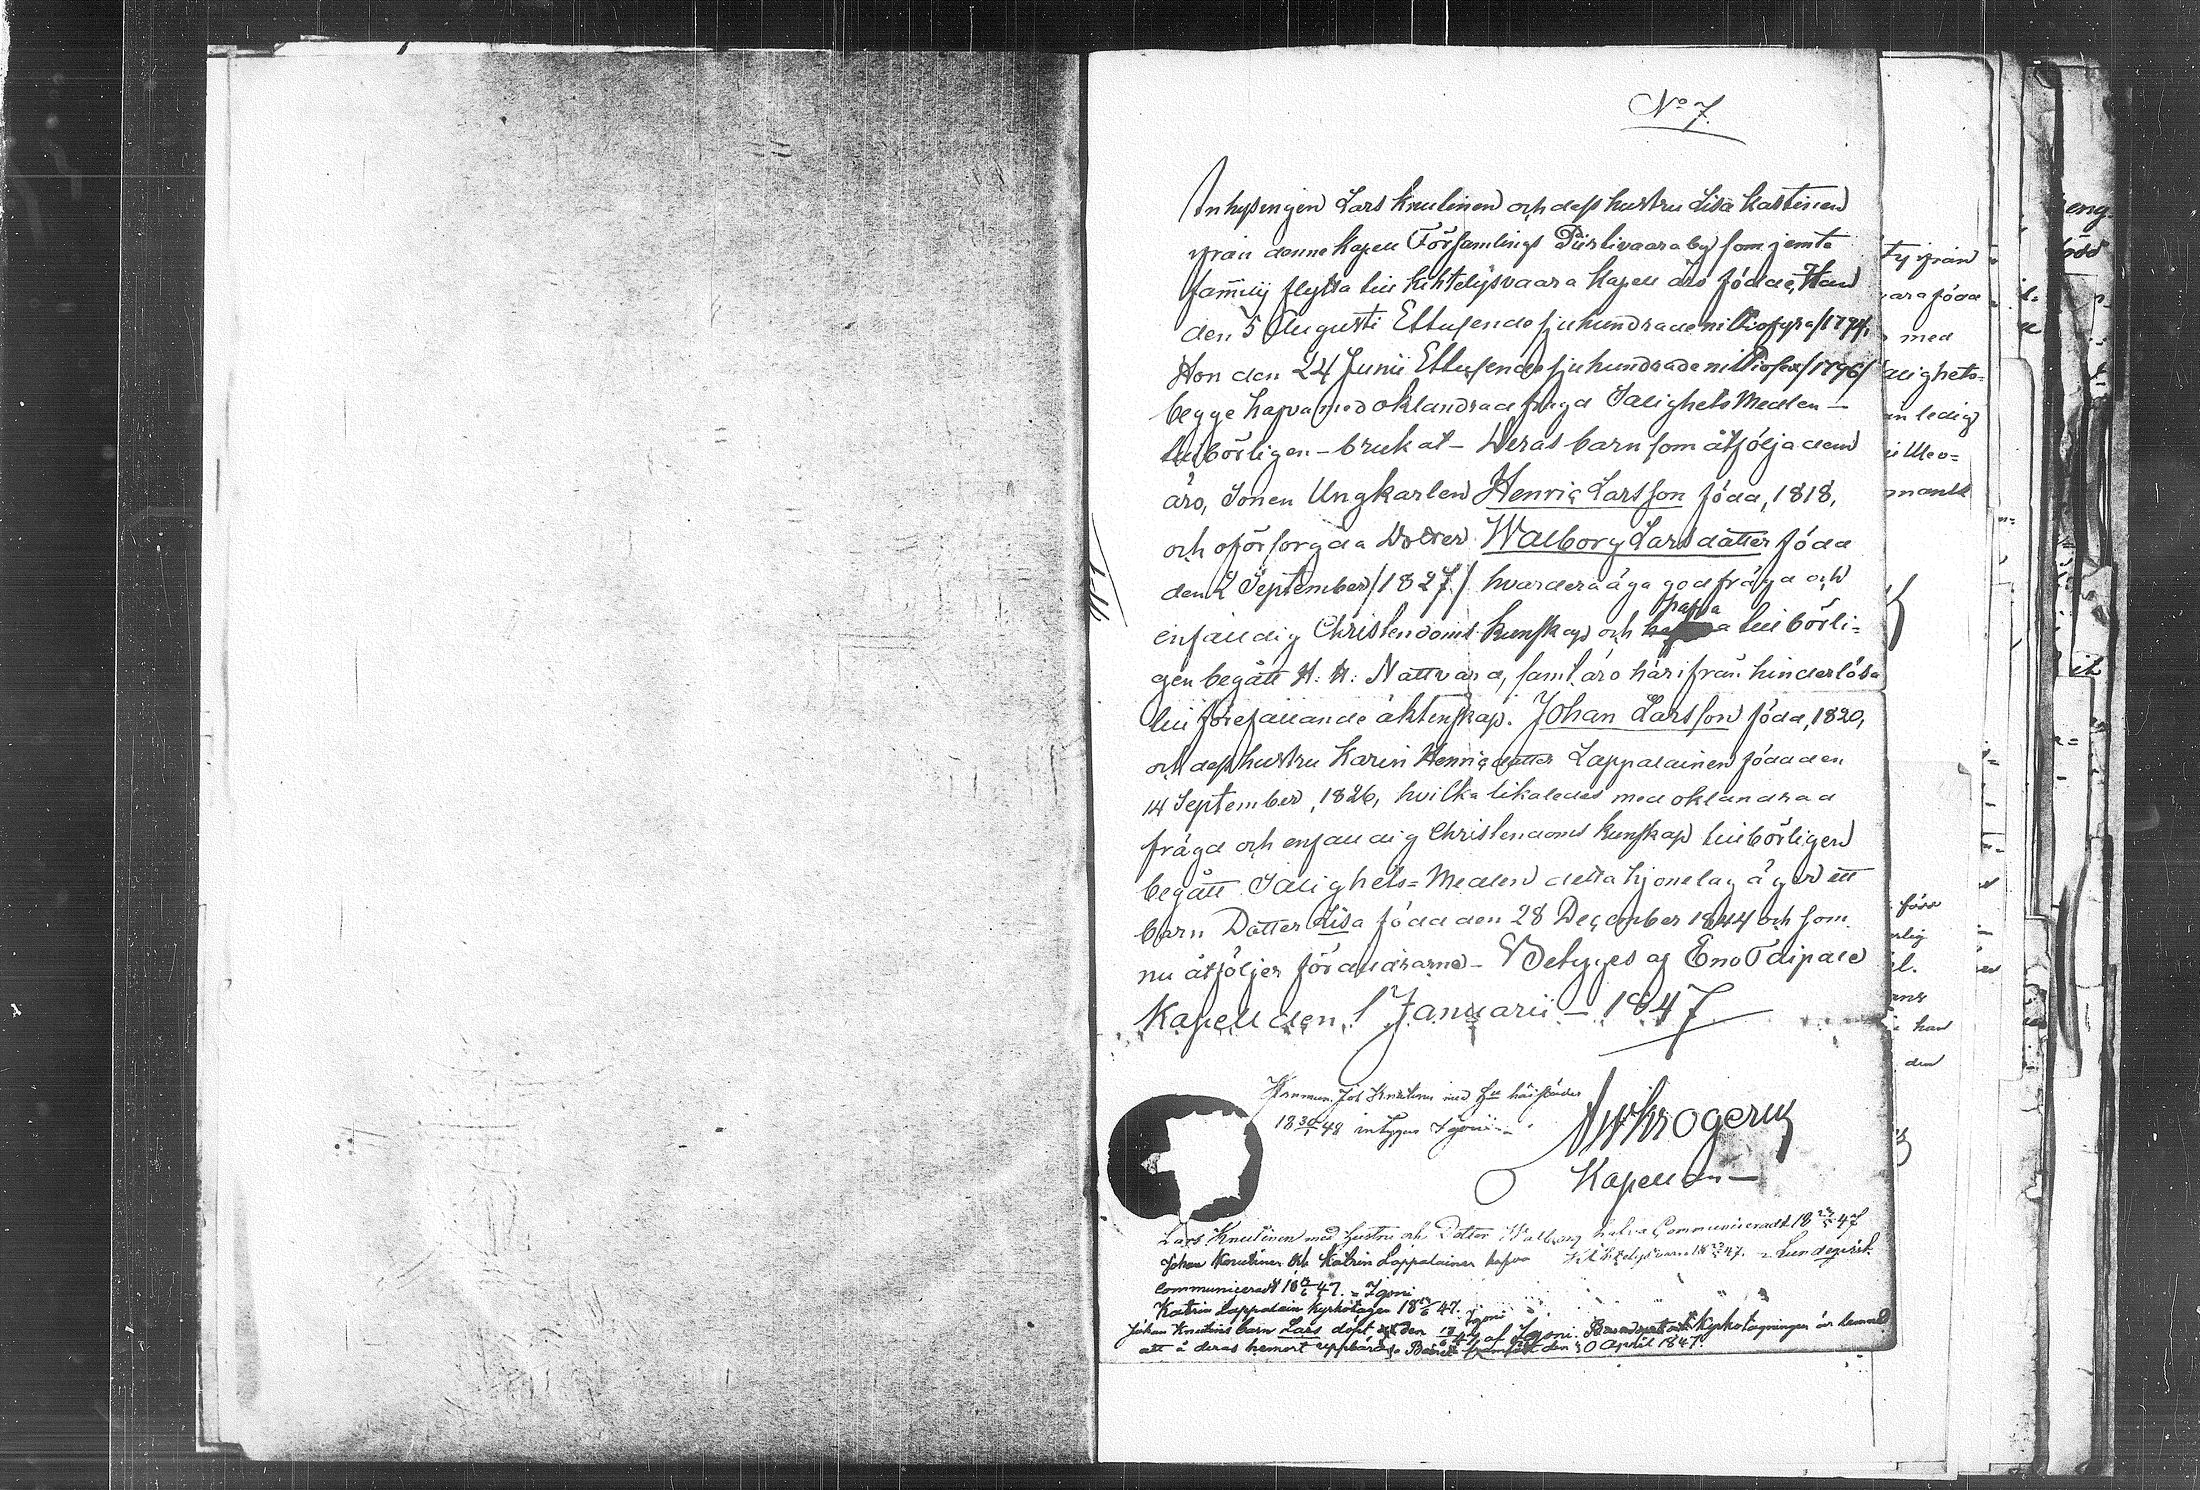 No 7.
Inhysingen Lars Knutinen och dess hustru Lisa Kastinen
ifrån denna Kapell Församlings Püslivaara by som jemte
familij flytta till Kihtelysvaara Kapell äro födde, Han
den 5 Augusti Ettusende sjuhundrade nittiofyra /1794/,
Hon den 24 Junii Ettusende sjuhundrade nittiosex /1796/
begge hafva med oklandrad frägd Salighets Medlen —
tillbörligen – brukat – Deras barn som åtfölja dem
äro, Sonen Ungkarlen Henric Larsson född, 1818,
och oförsörgda Dotter Walborg Larsdotter född
den 2 September /1827/ hvardera äga god frägd och
enfaldig Christendoms kunskap och hafva tillbörli=
gen begått H. H. Nattvard, samt äro härifrån hinderlösa
till förefallande äktenskap. Johan Larsson född, 1820,
och dess hustru Karin Henricdotter Lappalainen född den
14 September, 1826, hvilka likaledes med oklandrad
frägd och enfaldig Christendoms kunskap tillbörligen
begått Salighets=Medlen detta hjonelag äger ett
barn Dotter Lisa född den 28 December 1844 och som
nu åtföljer föräldrarna – Betyges af Eno Taipale
Kapell den 1 Januarii – 1847
Joh Knutinen med
1848 intygas Igoni
Krogerus
Kapellan —
Lars Knutinen med hustru och Dotter Walborg hafva Communiceradt 18 47
Johan Knutinen och Katrin Lappalainen hafva
Kihtelysvaara 18 47.
communiceradt 18 47. = Igoni
Katrin Lappalain kyrkotagen 18 47. Igoni
Johan Knutins barn Lars döpt den 47 af Igoni. kyrkotagningen är lemnad
att å deras hemort uppbäras. Barnet framfödt den 30 April 1847.